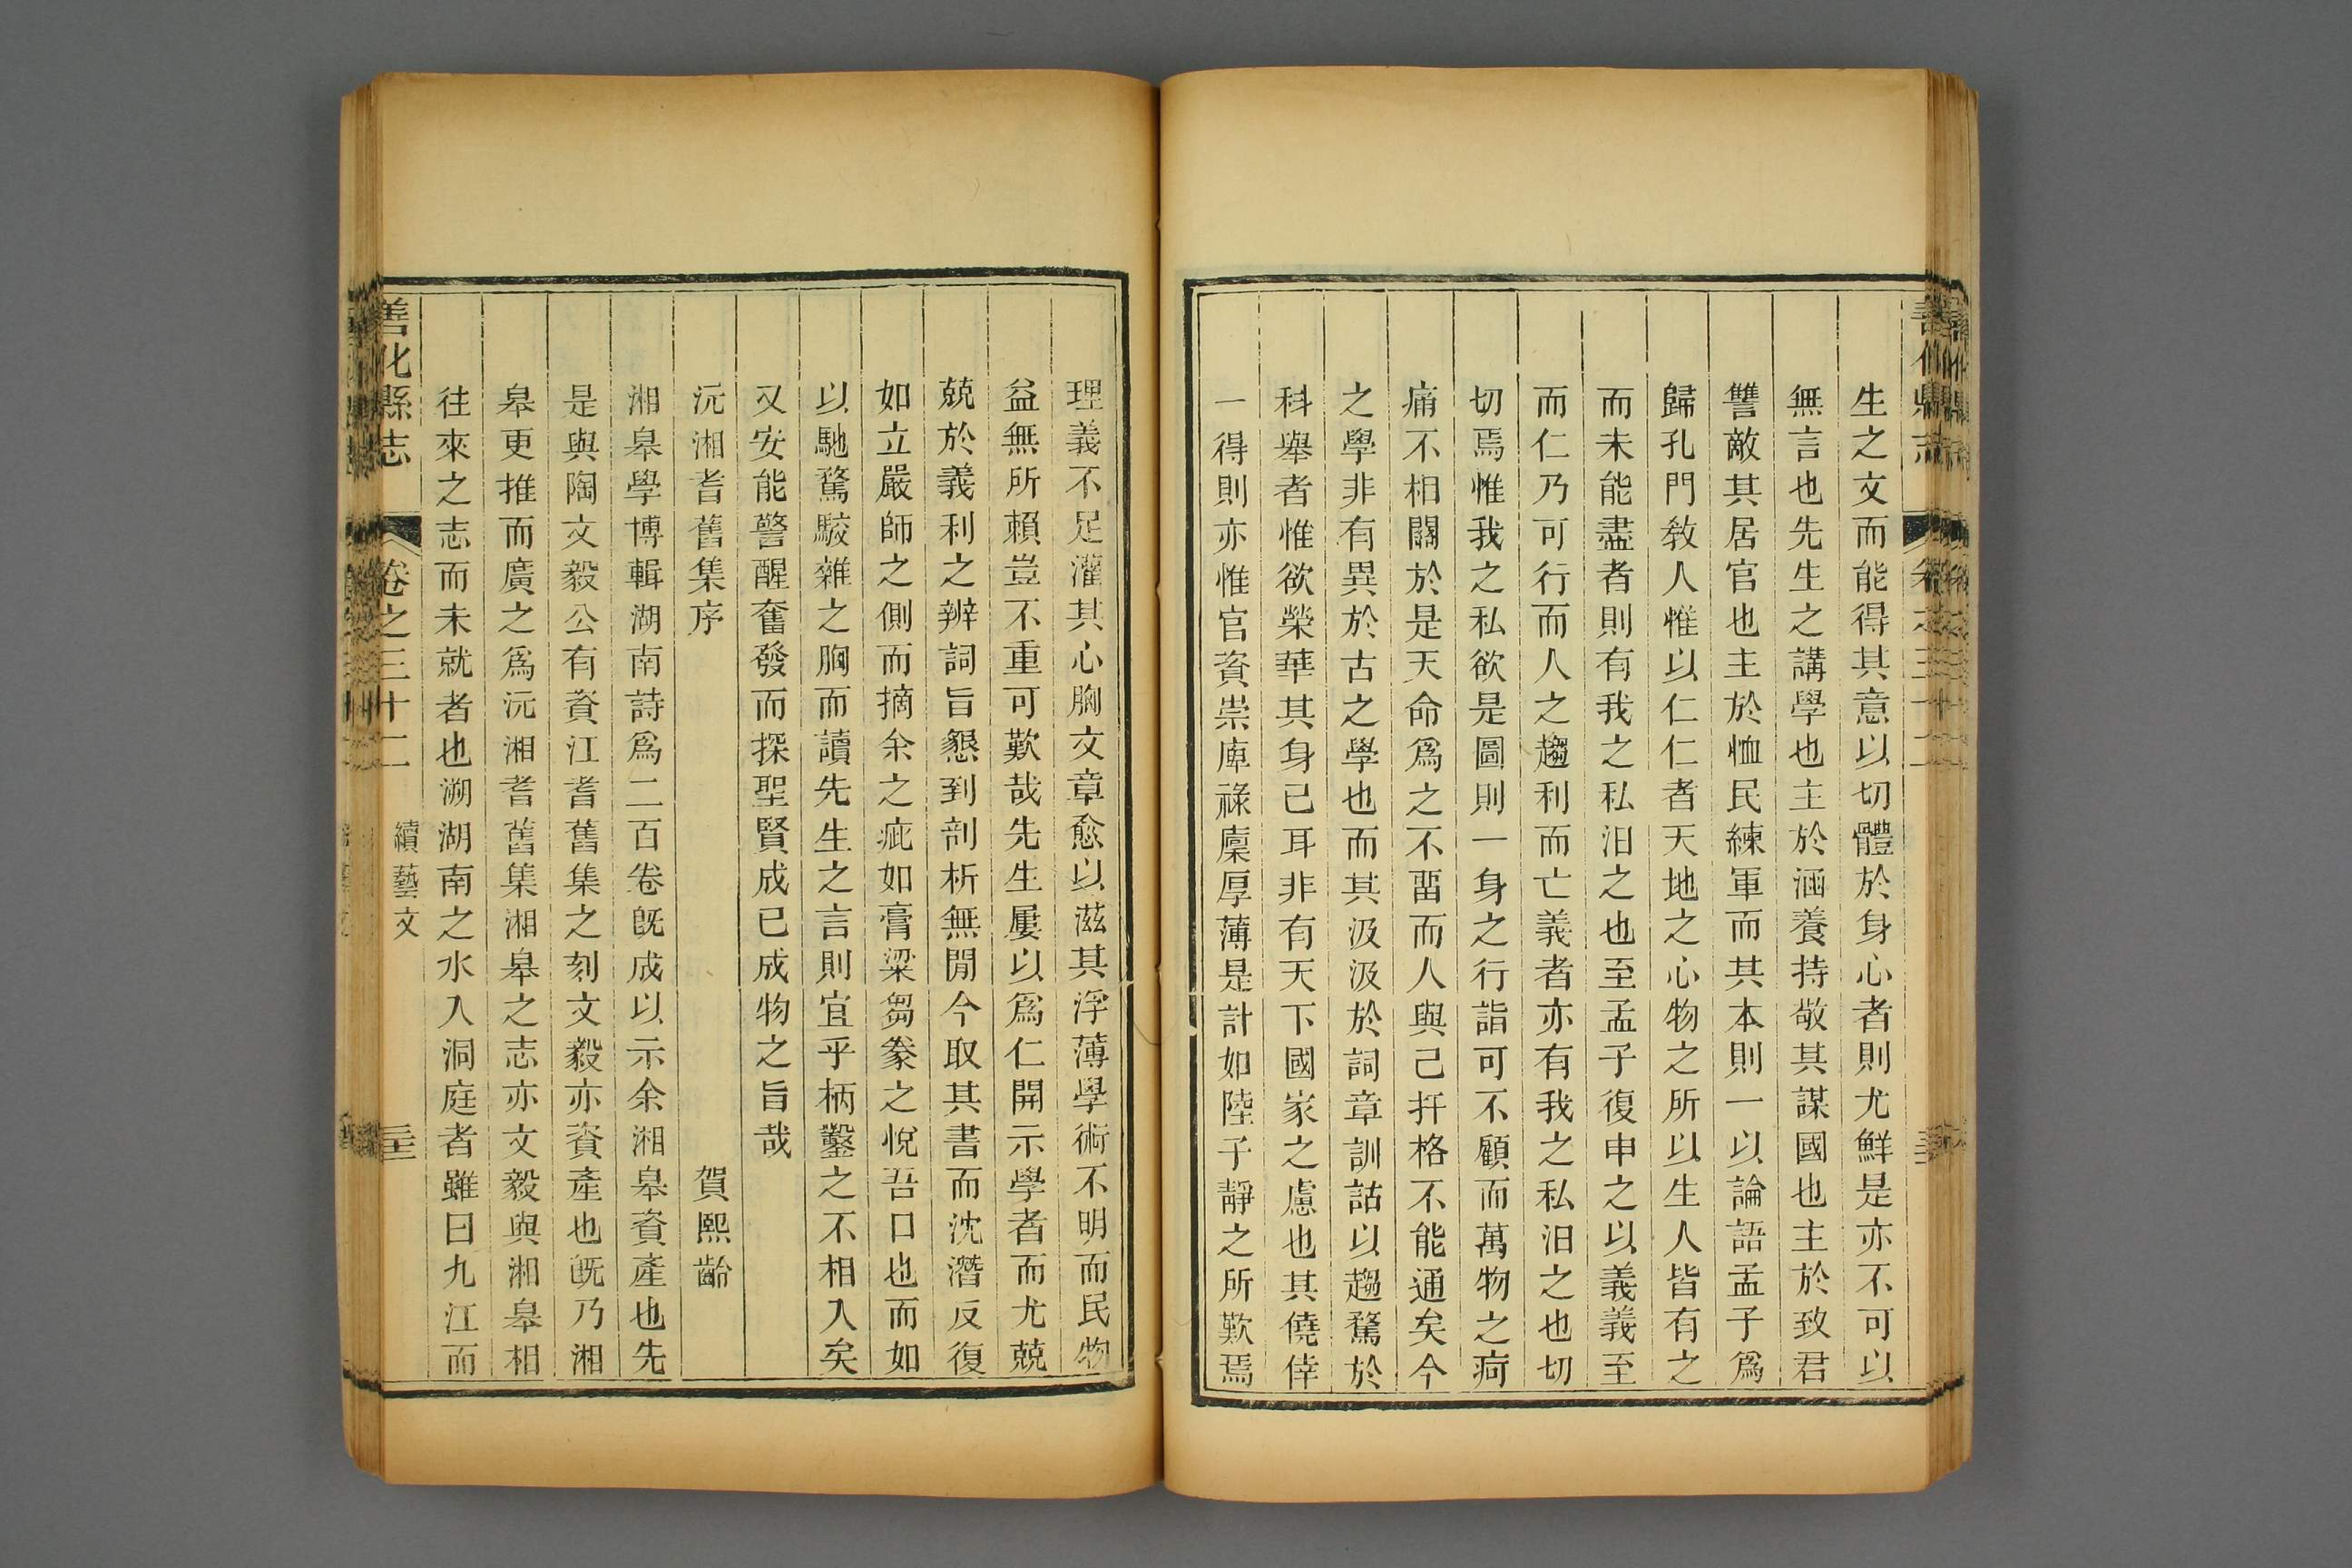 善化縣志
卷之三十二
生之文而能得其意以切體於身心者則尤鮮是亦不可以
無言也先生之講學也主於涵養持敬其謀國也主於致君
讐敵其居官也主於恤民練軍而其本則一以論語孟子爲
歸孔門敎人惟以仁仁者天地之心物之所以生人皆有之
而未能盡者則有我之私汨之也至孟子復申之以義義至
而仁乃可行而人之趨利而亡義者亦有我之私汨之也切
切焉惟我之私欲是圖則一身之行詣可不顧而萬物之疴
痛不相關於是天命爲之不畱而人與己扞格不能通矣今
之學非有異於古之學也而其汲汲於詞章訓詁以趨騖於
科舉者惟欲榮華其身己耳非有天下國家之慮也其僥倖
一得則亦惟官資崇庳祿廩厚薄是計如陸子靜之所歎焉
理義不足灌其心胸文章愈以滋其浮薄學術不明而民物
益無所賴豈不重可歎哉先生屢以爲仁開示學者而尤兢
兢於義利之辨詞旨懇到剖析無閒今取其書而沈潛反復
如立嚴師之側而摘余之疵如膏粱芻豢之悅吾口也而如
以馳騖駁雜之胸而讀先生之言則宜乎柄鑿之不相入矣
又安能警醒奮發而探聖賢成已成物之旨哉
沅湘耆舊集序
賀熙齡
湘皋學博輯湖南詩爲二百卷旣成以示余湘皋資產也先
是與陶文毅公有資江耆舊集之刻文毅亦資產也旣乃湘
皋更推而廣之爲沅湘耆舊集湘皋之志亦文毅與湘皋相
往來之志而未就者也溯湖南之水入洞庭者雖曰九江而
善化縣志
卷之三十二
續藝文